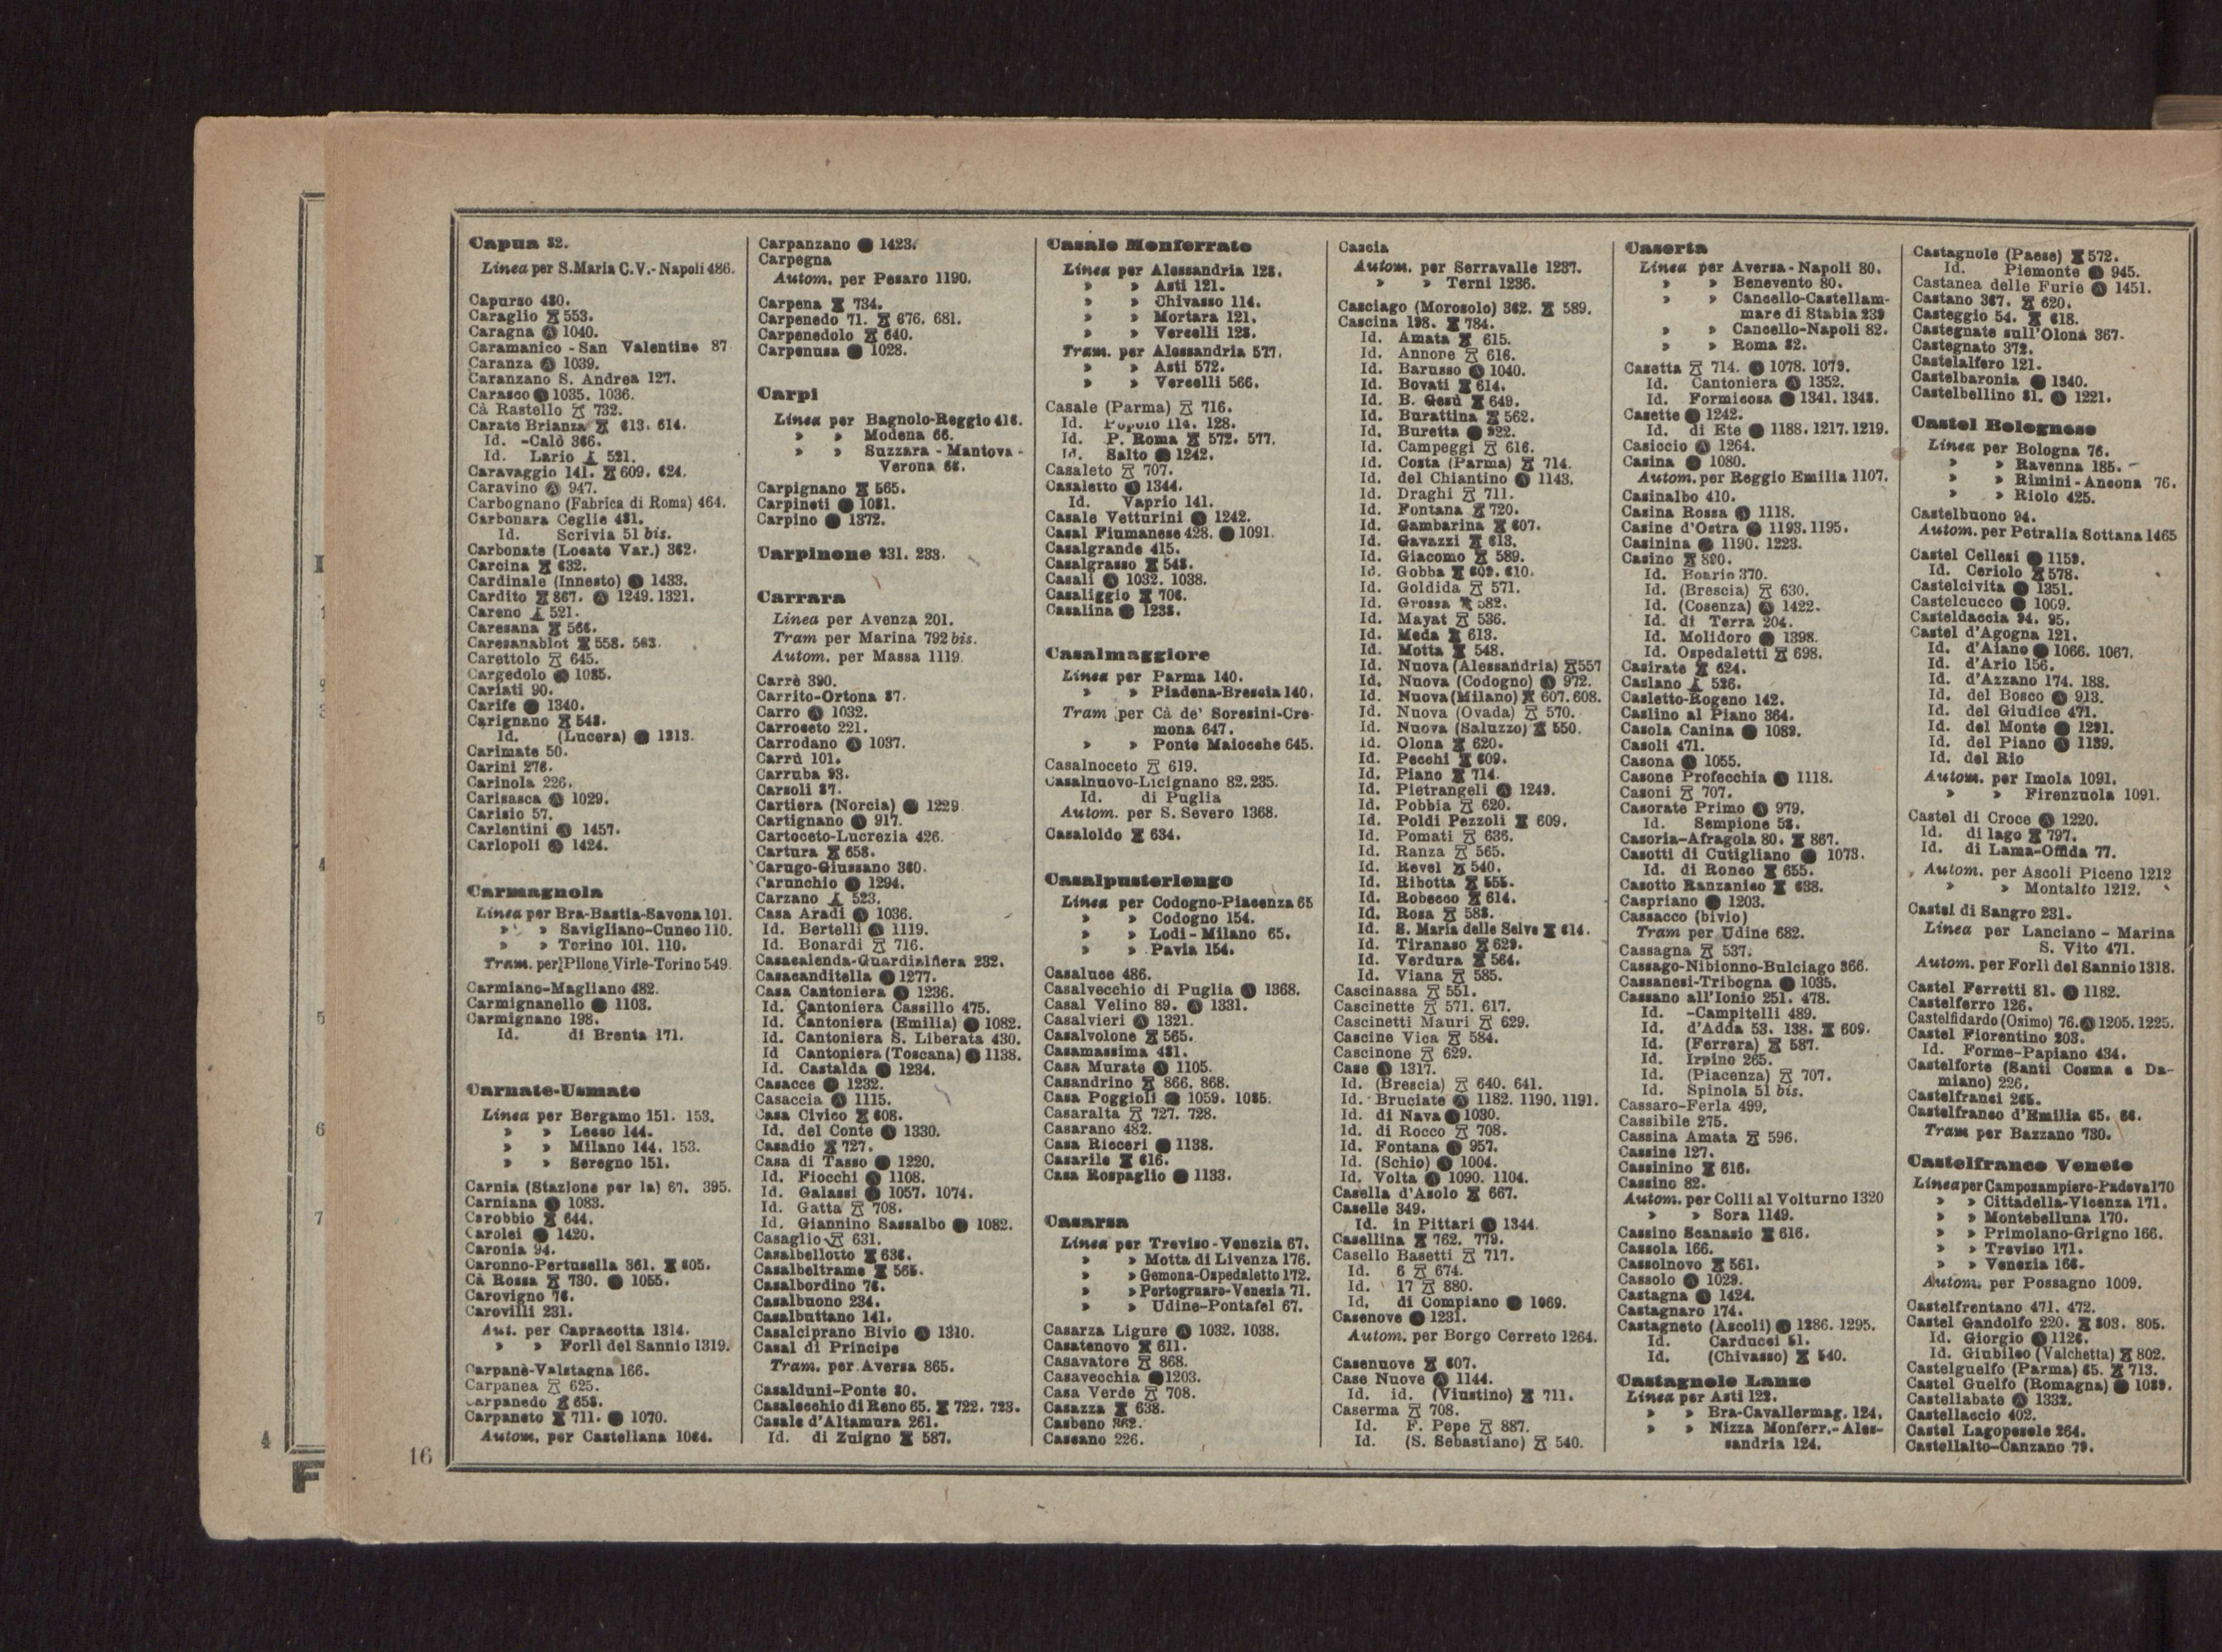 Capua 82.
Linea per S.Maria C.V.-Napoli 486.
Capurso 480.
Caraglio 553.
Caragna Ⓐ 1040.
Caramanico - San Valentino 87
Caranza Ⓐ 1039.
Caranzano S. Andrea 127.
Carasco Ⓐ 1035. 1036.
Cà Rastello 732.
Carate Brianza 613. 614.
Id. -Calò 366.
Id. Lario 521.
Caravaggio 141. 609. 624.
Caravino Ⓐ 947.
Carbognano (Fabrica di Roma) 464.
Carbonara Ceglie 481.
Id. Scrivia 51 bis.
Carbonate (Locate Var.) 362.
Carcina 632.
Cardinale (Innesto) Ⓐ 1433.
Cardito 867. Ⓐ 1249. 1321.
Careno 521.
Caresana 566.
Caresanablot 558. 563.
Carettolo 645.
Cargedolo Ⓐ 1085.
Cariati 90.
Carife Ⓐ 1340.
Carignano 548.
Id. (Lucera) Ⓐ 1313.
Carimate 50.
Carini 276.
Carinola 226.
Carisasca Ⓐ 1029.
Carisio 57.
Carlentini Ⓐ 1457.
Carlopoli Ⓐ 1424.
Carmagnola
Linea per Bra-Bastia-Savona 101.
» » Savigliano-Cuneo 110.
» » Torino 101. 110.
Tram. per Pilone Virle-Torino 549.
Carmiano-Magliano 482.
Carmignanello Ⓐ 1103.
Carmignano 198.
Id. di Brenta 171.
Carnate-Usmate
Linea per Bergamo 151. 153.
» » Lecco 144.
» » Milano 144. 153.
» » Seregno 151.
Carnia (Stazione per la) 67. 395.
Carniana Ⓐ 1083.
Carobbio 644.
Carolei Ⓐ 1420.
Caronia 94.
Caronno-Pertusella 361. 605.
Cà Rossa 730. Ⓐ 1055.
Carovigno 76.
Carovilli 231.
Aut. per Capracotta 1314.
» » Forlì del Sannio 1319.
Carpanè-Valstagna 166.
Carpanea 625.
Carpanedo 658.
Carpaneto 711. Ⓐ 1070.
Autom. per Castellana 1064.
Carpanzano Ⓐ 1423.
Carpegna
Autom. per Pesaro 1190.
Carpena 734.
Carpenedo 71. 676. 681.
Carpenedolo 640.
Carpenusa Ⓐ 1028.
Carpi
Linea per Bagnolo-Reggio 416.
» » Modena 66.
» » Suzzara - Mantova -
Verona 66.
Carpignano 565.
Carpineti Ⓐ 1081.
Carpino Ⓐ 1372.
Carpinone 231. 233.
Carrara
Linea per Avenza 201.
Tram per Marina 792 bis.
Autom. per Massa 1119.
Carrè 390.
Carrito-Ortona 87.
Carro Ⓐ 1032.
Carroceto 221.
Carrodano Ⓐ 1037.
Carrù 101.
Carruba 93.
Carsoli 87.
Cartiera (Norcia) Ⓐ 1229.
Cartignano Ⓐ 917.
Cartoceto-Lucrezia 426.
Cartura 658.
Carugo-Giussano 360.
Carunchio Ⓐ 1294.
Carzano 523.
Casa Aradi Ⓐ 1036.
Id. Bertelli Ⓐ 1119.
Id. Bonardi 716.
Casacalenda-Guardialfiera 232.
Casacanditella Ⓐ 1277.
Casa Cantoniera Ⓐ 1236.
Id. Cantoniera Cassillo 475.
Id. Cantoniera (Emilia) Ⓐ 1082.
Id. Cantoniera S. Liberata 430.
Id Cantoniera (Toscana) Ⓐ 1138.
Id. Castalda Ⓐ 1234.
Casacce Ⓐ 1232.
Casaccia Ⓐ 1115.
Casa Civico 608.
Id. del Conte Ⓐ 1330.
Casadio 727.
Casa di Tasso Ⓐ 1220.
Id. Fiocchi Ⓐ 1108.
Id. Galassi Ⓐ 1057. 1074.
Id. Gatta 708.
Id. Giannino Sassalbo Ⓐ 1082.
Casaglio 631.
Casalbellotto 636.
Casalbeltrame 565.
Casalbordino 76.
Casalbuono 234.
Casalbuttano 141.
Casalciprano Bivio Ⓐ 1310.
Casal di Principe
Tram. per Aversa 865.
Casalduni-Ponte 80.
Casalecchio di Reno 65. 722. 723.
Casale d'Altamura 261.
Id. di Zuigno 587.
Casale Monferrato
Linea per Alessandria 128.
» » Asti 121.
» » Chivasso 114.
» » Mortara 121.
» » Vercelli 128.
Tram. per Alessandria 577.
» » Asti 572.
» » Vercelli 566.
Casale (Parma) 716.
Id. Popolo 114. 128.
Id. P. Roma 572. 577.
Id. Salto Ⓐ 1242.
Casaleto 707.
Casaletto Ⓐ 1344.
Id. Vaprio 141.
Casale Vetturini Ⓐ 1242.
Casal Fiumanese 428. Ⓐ 1091.
Casalgrande 415.
Casalgrasso 548.
Casali Ⓐ 1032. 1038.
Casaliggio 706.
Casalina Ⓐ 1238.
Casalmaggiore
Linea per Parma 140.
» » Piadena-Brescia 140.
Tram per Cà de' Soresini-Cre-
mona 647.
» » Ponte Maiocche 645.
Casalnoceto 619.
Casalnuovo-Licignano 82. 235.
Id. di Puglia
Autom. per S. Severo 1368.
Casaloldo 634.
Casalpusterlengo
Linea per Codogno-Piacenza 65
» » Codogno 154.
» » Lodi - Milano 65.
» » Pavia 154.
Casaluce 486.
Casalvecchio di Puglia Ⓐ 1368.
Casal Velino 89. Ⓐ 1331.
Casalvieri Ⓐ 1321.
Casalvolone 565.
Casamassima 481.
Casa Murate Ⓐ 1105.
Casandrino 866. 868.
Casa Poggioli Ⓐ 1059. 1085.
Casaralta 727. 728.
Casarano 482.
Casa Ricceri Ⓐ 1138.
Casarile 616.
Casa Rospaglio Ⓐ 1133.
Casarsa
Linea per Treviso - Venezia 67.
» » Motta di Livenza 176.
» » Gemona-Ospedaletto 172.
» » Portogruaro-Venezia 71.
» » Udine-Pontafel 67.
Casarza Ligure Ⓐ 1032. 1038.
Casatenovo 611.
Casavatore 868.
Casavecchia Ⓐ 1203.
Casa Verde 708.
Casazza 638.
Casbeno 362.
Cascano 226.
Cascia
Autom. per Serravalle 1237.
» » Terni 1236.
Casciago (Morosolo) 362. 589.
Cascina 198. 784.
Id. Amata 615.
Id. Annone 616.
Id. Barusso Ⓐ 1040.
Id. Bovati 614.
Id. B. Gesù 649.
Id. Burattina 562.
Id. Buretta Ⓐ 922.
Id. Campeggi 616.
Id. Costa (Parma) 714.
Id. del Chiantino Ⓐ 1143.
Id. Draghi 711.
Id. Fontana 720.
Id. Gambarina 607.
Id. Gavazzi 613.
Id. Giacomo 589.
Id. Gobba 609. 610.
Id. Goldida 571.
Id. Grossa 582.
Id. Mayat 536.
Id. Meda 613.
Id. Motta 548.
Id. Nuova (Alessandria) 557
Id. Nuova (Codogno) Ⓐ 972.
Id. Nuova (Milano) 607. 608.
Id. Nuova (Ovada) 570.
Id. Nuova (Saluzzo) 550.
Id. Olona 620.
Id. Pecchi 609.
Id. Piano 714.
Id. Pietrangeli Ⓐ 1249.
Id. Pobbia 620.
Id. Poldi Pezzoli 609.
Id. Pomati 636.
Id. Ranza 565.
Id. Revel 540.
Id. Ribotta 555.
Id. Robecco 614.
Id. Rosa 588.
Id. S. Maria delle Selve 614.
Id. Tiranaso 629.
Id. Verdura 564.
Id. Viana 585.
Cascinassa 551.
Cascinette 571. 617.
Cascinetti Mauri 629.
Cascine Vica 584.
Cascinone 629.
Case Ⓐ 1317.
Id. (Brescia) 640. 641.
Id. Bruciate Ⓐ 1182. 1190. 1191.
Id. di Nava Ⓐ 1030.
Id. di Rocco 708.
Id. Fontana Ⓐ 957.
Id. (Schio) Ⓐ 1004.
Id. Volta Ⓐ 1090. 1104.
Casella d'Asolo 667.
Caselle 349.
Id. in Pittari Ⓐ 1344.
Casellina 762. 779.
Casello Basetti 717.
Id. 6 674.
Id. 17 880.
Id. di Compiano Ⓐ 1069.
Casenove Ⓐ 1231.
Autom. per Borgo Cerreto 1264.
Casenuove 607.
Case Nuove Ⓐ 1144.
Id. id. (Viustino) 711.
Caserma 708.
Id. F. Pepe 887.
Id. (S. Sebastiano) 540.
Caserta
Linea per Aversa - Napoli 80.
» » Benevento 80.
» » Cancello-Castellam-
mare di Stabia 239
» » Cancello-Napoli 82.
» » Roma 82.
Casetta 714. Ⓐ 1078. 1079.
Id. Cantoniera Ⓐ 1352.
Id. Formicosa Ⓐ 1341. 1348.
Casette Ⓐ 1242.
Id. di Ete Ⓐ 1188. 1217. 1219.
Casiccio Ⓐ 1264.
Casina Ⓐ 1080.
Autom. per Reggio Emilia 1107.
Casinalbo 410.
Casina Rossa Ⓐ 1118.
Casine d'Ostra Ⓐ 1193. 1195.
Casinina Ⓐ 1190. 1223.
Casino 890.
Id. Boario 370.
Id. (Brescia) 630.
Id. (Cosenza) Ⓐ 1422.
Id. di Terra 204.
Id. Molidoro Ⓐ 1398.
Id. Ospedaletti 698.
Casirate 624.
Caslano 526.
Casletto-Rogeno 142.
Caslino al Piano 364.
Casola Canina Ⓐ 1089.
Casoli 471.
Casona Ⓐ 1055.
Casone Profecchia Ⓐ 1118.
Casoni 707.
Casorate Primo Ⓐ 979.
Id. Sempione 58.
Casoria-Afragola 80. 867.
Casotti di Cutigliano Ⓐ 1073.
Id. di Ronco 655.
Casotto Ranzanico 638.
Caspriano Ⓐ 1203.
Cassacco (bivio)
Tram per Udine 682.
Cassagna 537.
Cassago-Nibionno-Bulciago 366.
Cassanesi-Tribogna Ⓐ 1035.
Cassano all'Ionio 251. 478.
Id. -Campitelli 489.
Id. d'Adda 53. 138. 609.
Id. (Ferrera) 587.
Id. Irpino 265.
Id. (Piacenza) 707.
Id. Spinola 51 bis.
Cassaro-Ferla 499.
Cassibile 275.
Cassina Amata 596.
Cassine 127.
Cassinino 616.
Cassino 82.
Autom. per Colli al Volturno 1320
» » Sora 1149.
Cassino Scanasio 616.
Cassola 166.
Cassolnovo 561.
Cassolo Ⓐ 1029.
Castagna Ⓐ 1424.
Castagnaro 174.
Castagneto (Ascoli) Ⓐ 1286. 1295.
Id. Carducci 51.
Id. (Chivasso) 540.
Castagnole Lanze
Linea per Asti 122.
» » Bra-Cavallermag. 124.
» » Nizza Monferr.-Ales-
sandria 124.
Castagnole (Paese) 572.
Id. Piemonte Ⓐ 945.
Castanea delle Furie Ⓐ 1451.
Castano 367. 620.
Casteggio 54. 618.
Castegnate sull'Olona 367.
Castegnato 372.
Castelalfero 121.
Castelbaronia Ⓐ 1340.
Castelbellino 81. Ⓐ 1221.
Castel Bolognese
Linea per Bologna 76.
» » Ravenna 185.
» » Rimini - Ancona 76.
» » Riolo 425.
Castelbuono 94.
Autom. per Petralia Sottana 1465
Castel Cellesi Ⓐ 1159.
Id. Ceriolo 578.
Castelcivita Ⓐ 1351.
Castelcucco Ⓐ 1009.
Casteldaccia 94. 95.
Castel d'Agogna 121.
Id. d'Aiano Ⓐ 1066. 1067.
Id. d'Ario 156.
Id. d'Azzano 174. 188.
Id. del Bosco Ⓐ 913.
Id. del Giudice 471.
Id. del Monte Ⓐ 1291.
Id. del Piano Ⓐ 1139.
Id. del Rio
Autom. per Imola 1091.
» » Firenzuola 1091.
Castel di Croce Ⓐ 1220.
Id. di lago 797.
Id. di Lama-Offida 77.
Autom. per Ascoli Piceno 1212
» » Montalto 1212.
Castel di Sangro 231.
Linea per Lanciano - Marina
S. Vito 471.
Autom. per Forlì del Sannio 1318.
Castel Ferretti 81. Ⓐ 1182.
Castelferro 126.
Castelfidardo (Osimo) 76. Ⓐ 1205. 1225.
Castel Fiorentino 203.
Id. Forme-Papiano 434.
Castelforte (Santi Cosma e Da-
miano) 226.
Castelfranci 265.
Castelfranco d'Emilia 65. 66.
Tram per Bazzano 730.
Castelfranco Veneto
Linea per Camposampiero-Padova 170
» » Cittadella-Vicenza 171.
» » Montebelluna 170.
» » Primolano-Grigno 166.
» » Treviso 171.
» » Venezia 166.
Autom. per Possagno 1009.
Castelfrentano 471. 472.
Castel Gandolfo 220. 803. 805.
Id. Giorgio Ⓐ 1126.
Id. Giubileo (Valchetta) 802.
Castelguelfo (Parma) 65. 713.
Castel Guelfo (Romagna) Ⓐ 1089.
Castellabate Ⓐ 1332.
Castellaccio 402.
Castel Lagopesole 264.
Castellalto-Canzano 79.
16
4
F